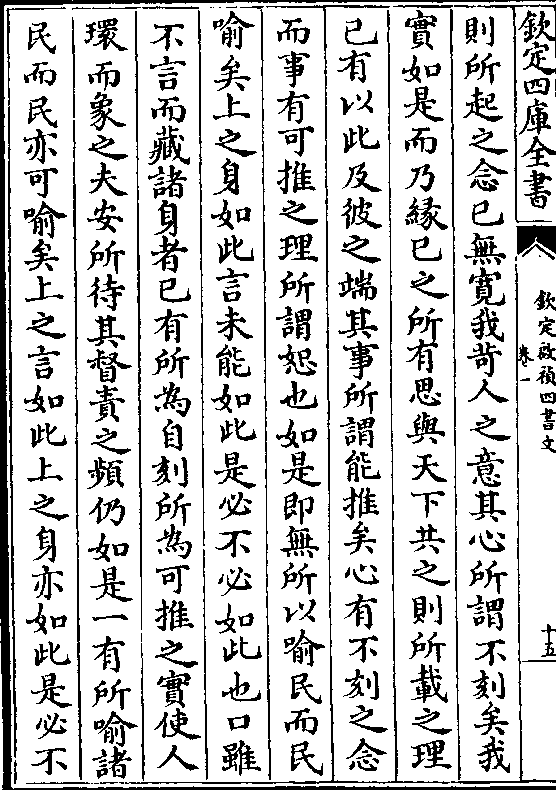 欽定四庫全書
欽定啟禎四書文
卷一
十五
則所起之念已無寛我苛人之意其心所謂不刻矣我
實如是而乃緣已之所有思與天下共之則所載之理
已有以此及彼之端其事所謂能推矣心有不刻之念
而事有可推之理所謂恕也如是即無所以喻民而民
喻矣上之身如此言未能如此是必不必如此也口雖
不言而藏諸身者已有所為自刻所為可推之實使人
環而象之夫安所待其督責之頻仍如是一有所喻諸
民而民亦可喻矣上之言如此上之身亦如此是必不